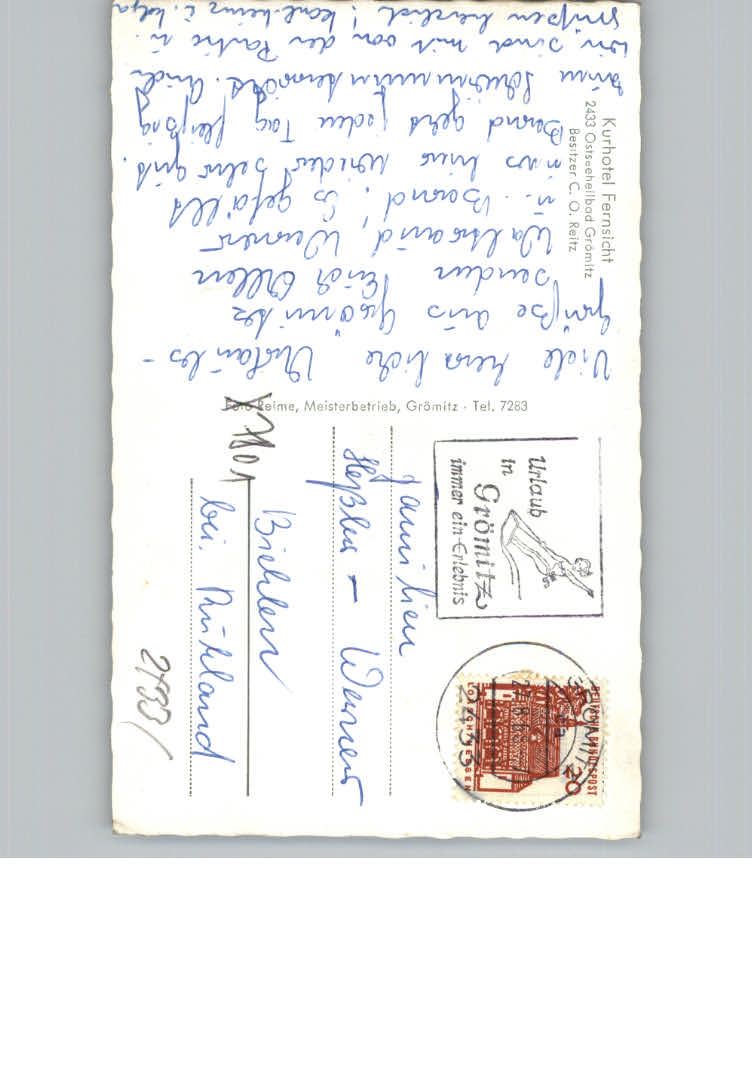 Kurhotel Fernsicht
2433 Ostseeheilbad Grömitz
Besitzer C. O. Reitz
Viele herzliche Urlaubs-
grüße aus Grömitz
senden Euch Allen
Waltraud, Werner
u. Bernd, Es gefällt
uns hier wieder sehr gut.
Bernd geht jeden Tag fleißig
zum Schwimmunterricht. Auch
wir sind mit von der Partie u.
grüßen herzlich! Karl-Heinz u. Helga
Foto Reime, Meisterbetrieb, Grömitz · Tel. 7283
Urlaub
in
Grömitz
immer ein Erlebnis
GRÖMITZ
2433
DEUTSCHE BUNDESPOST
20
LORSCH/HESSEN
Familien
Werner
Biehlen
bei Ruhland
7801